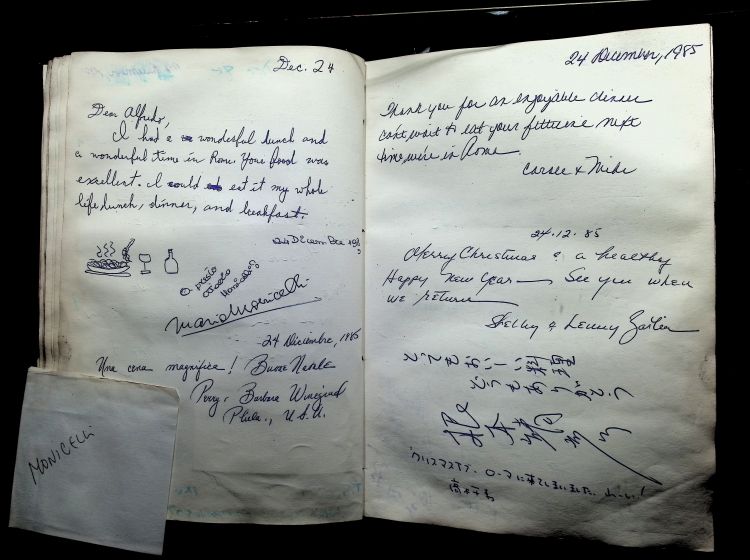 Dec. 24
Dear Alfredo,
I had a wonderful lunch and
a wonderful time in Rome. Your food was
excellent. I could eat it my whole
life lunch, dinner, and breakfast.
24 Dicembre 1985
A presto
Monicelli
Mario Monicelli
24 Diciembre, 1985
Una cena magnifica! Buone Natale
Perry & Barbara
Phila., U.S.A.
MONICELLI
24 December, 1985
Thank you for an enjoyable dinner
can't wait to eat your fettucine next
time we're in Rome.
& Mike
24.12.85
Merry Christmas & a healthy
Happy New Year — See you when
we return
Shelly & Lenny
とてもおいしい料理
どうもありがとう
クリスマスイブ、ローマに来ています